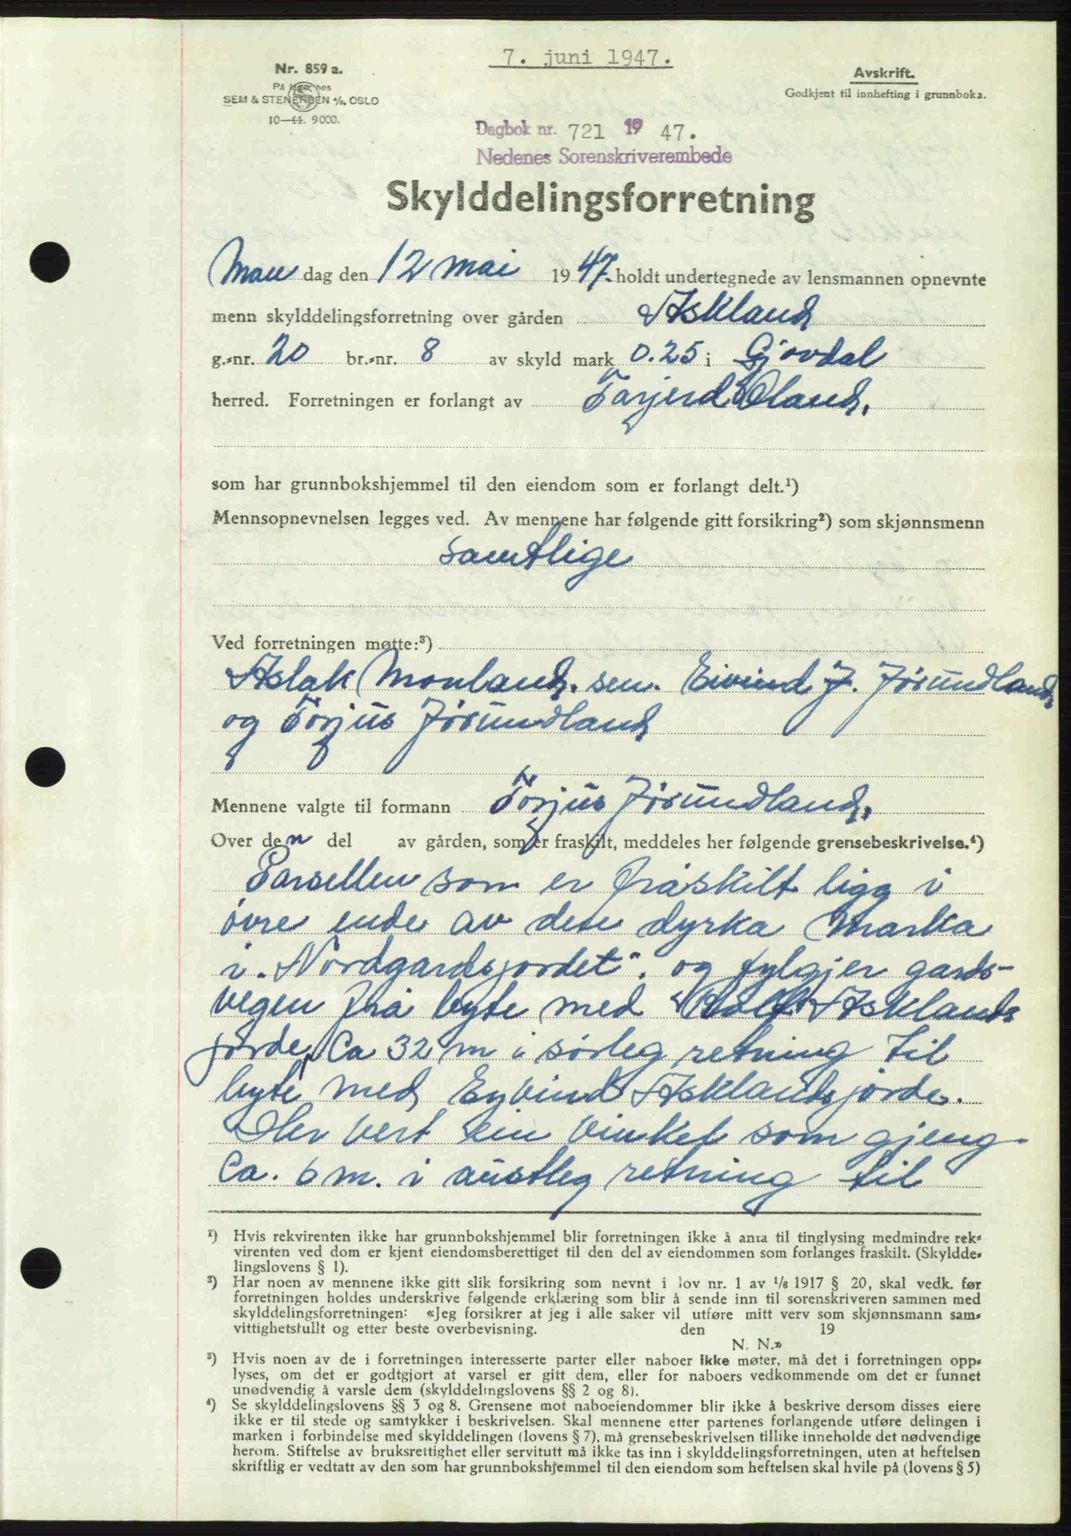 7. juni 1947.
Nr. 859 a.
På lager hos
SEM & STENERSEN A/S, OSLO
10—44. 9000.
Avskrift.
Godkjent til innhefting i grunnboka.
Dagbok nr. 721 1947.
Nedenes Sorenskriverembede
Skylddelingsforretning
Man dag den 12 mai 1947. holdt undertegnede av lensmannen opnevnte
menn skylddelingsforretning over gården Askland
g.-nr. 20 br.-nr. 8 av skyld mark 0.25 i Gjøvdal
herred. Forretningen er forlangt av Tarjerd Øland.
som har grunnbokshjemmel til den eiendom som er forlangt delt.¹)
Mennsopnevnelsen legges ved. Av mennene har følgende gitt forsikring²) som skjønnsmenn
samtlige
Ved forretningen møtte:³)
Aslak Monland. sen. Eivind J. Jørundland
og Torjus Jørundland
Mennene valgte til formann Torjus Jørundland.
Over den del av gården, som er fraskilt, meddeles her følgende grensebeskrivelse.⁴)
Parsellen som er fråskilt ligg i
øvre ende av den dyrka marka
i „Nordgardsjordet". og fylgjer gards-
vegen frå byte med Asklands
jorde, Ca 32 m i sørleg retning til
byte med Eyvind Asklands jorde.
Der vert ein vinkel som gjeng
Ca. 6 m. i austleg retning til
¹) Hvis rekvirenten ikke har grunnbokshjemmel blir forretningen ikke å anta til tinglysing medmindre rek-
virenten ved dom er kjent eiendomsberettiget til den del av eiendommen som forlanges fraskilt. (Skyldde-
lingslovens § 1).
²) Har noen av mennene ikke gitt slik forsikring som nevnt i lov nr. 1 av 1/6 1917 § 20, skal vedk. før
forretningen holdes underskrive følgende erklæring som blir å sende inn til sorenskriveren sammen med
skylddelingsforretningen: «Jeg forsikrer at jeg i alle saker vil utføre mitt verv som skjønnsmann sam-
vittighetsfullt og etter beste overbevisning. den 19
N. N.»
³) Hvis noen av de i forretningen interesserte parter eller naboer ikke møter, må det i forretningen opp-
lyses, om det er godtgjort at varsel er gitt dem, eller for naboers vedkommende om det er funnet
unødvendig å varsle dem (skylddelingslovens §§ 2 og 8).
⁴) Se skylddelingslovens §§ 3 og 8. Grensene mot naboeiendommer blir ikke å beskrive dersom disses eiere
ikke er til stede og samtykker i beskrivelsen. Skal mennene etter partenes forlangende utføre delingen i
marken i forbindelse med skylddelingen (lovens § 7), må grensebeskrivelsen tillike inneholde det nødvendige
herom. Stiftelse av bruksrettighet eller servitutt må ikke tas inn i skylddelingsforretningen, uten at heftelsen
skriftlig er vedtatt av den som har grunnbokshjemmel til den eiendom som heftelsen skal hvile på (lovens § 5)